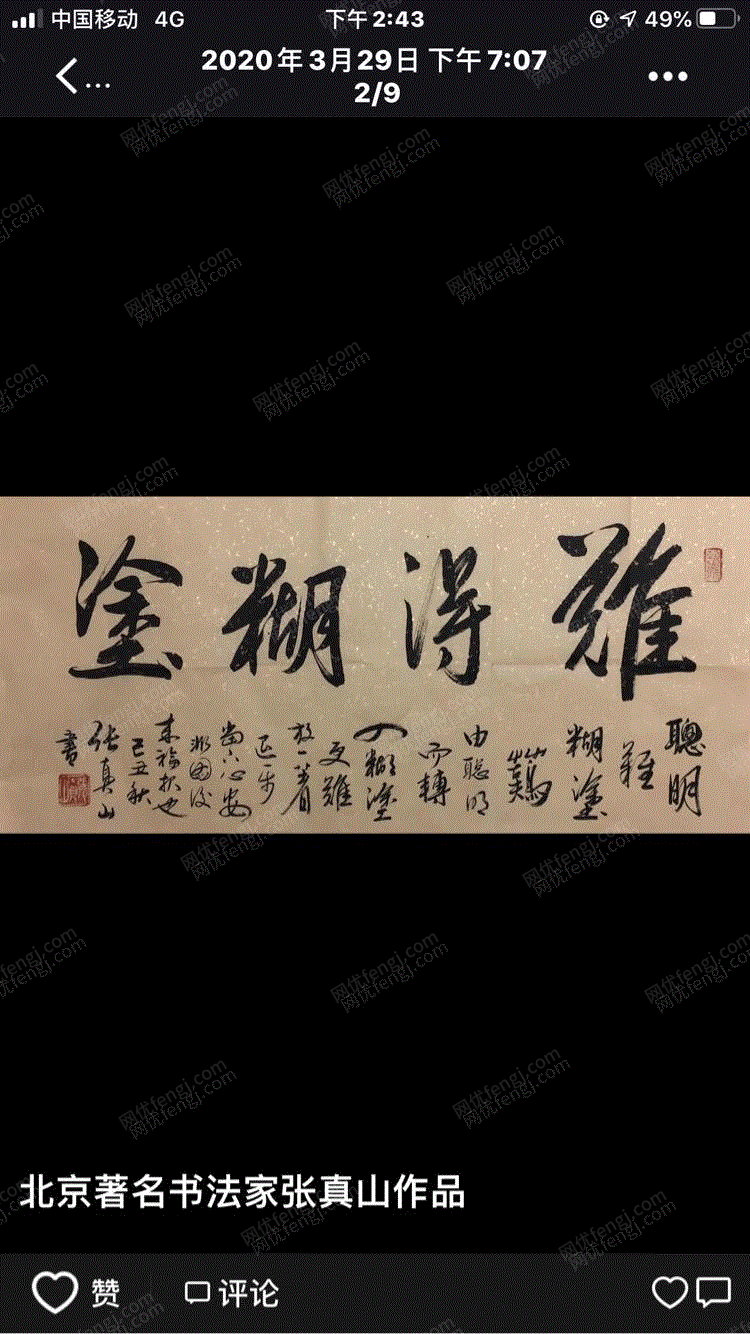 中国移动 4G 下午2:43 49%
2020年3月29日 下午7:07
2/9
網优fengj.com
難得糊塗
聰明
難
糊塗
難
由聰明
而轉
入糊塗
更難
放一著
退一步
當下心安
非圖後
來福报也
己丑秋
张真山
書
北京著名书法家张真山作品
赞 评论